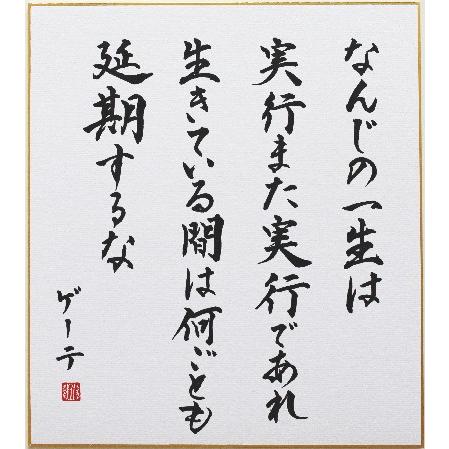 なんじの一生は
実行また実行であれ
生きている間は何ごとも
延期するな
ゲーテ